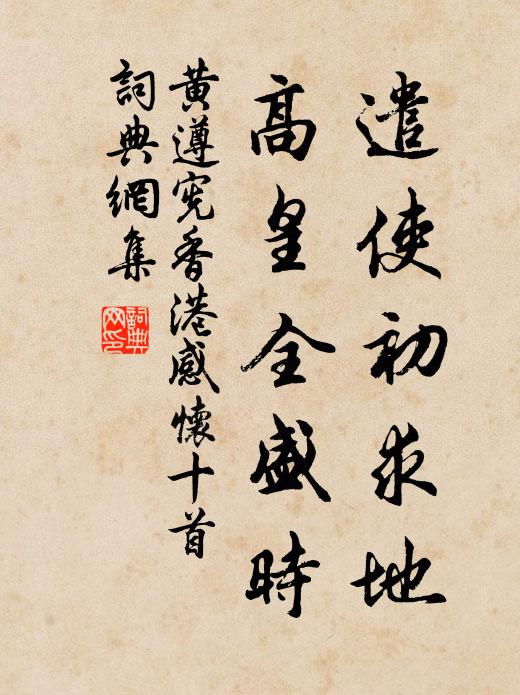 遣使初求地
高皇全盛時
黃遵宪香港感懷十首
詞典網集
詞典
网印